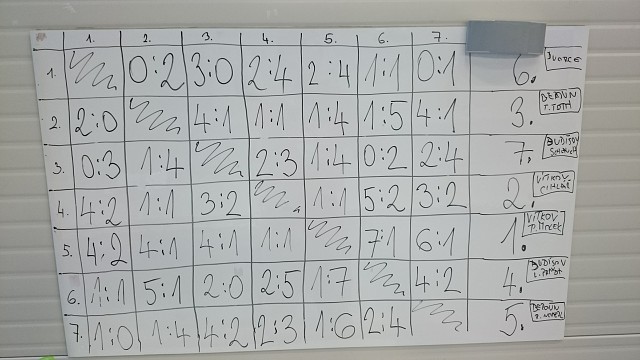 1. 2. 3. 4. 5. 6. 7.
1. 0:2 3:0 2:4 2:4 1:1 0:1 6. DVORCE
2. 2:0 4:1 1:1 1:4 1:5 4:1 3. DERDUN T. TOTH
3. 0:3 1:4 2:3 1:4 0:2 2:4 7. BUDIŠOV
4. 4:2 1:1 3:2 1:1 5:2 3:2 2. VÍTKOV
5. 4:2 4:1 4:1 1:1 7:1 6:1 1. VÍTKOV
6. 1:1 5:1 2:0 2:5 1:7 4:2 4. BUDIŠOV
7. 1:0 1:4 4:2 2:3 1:6 2:4 5.